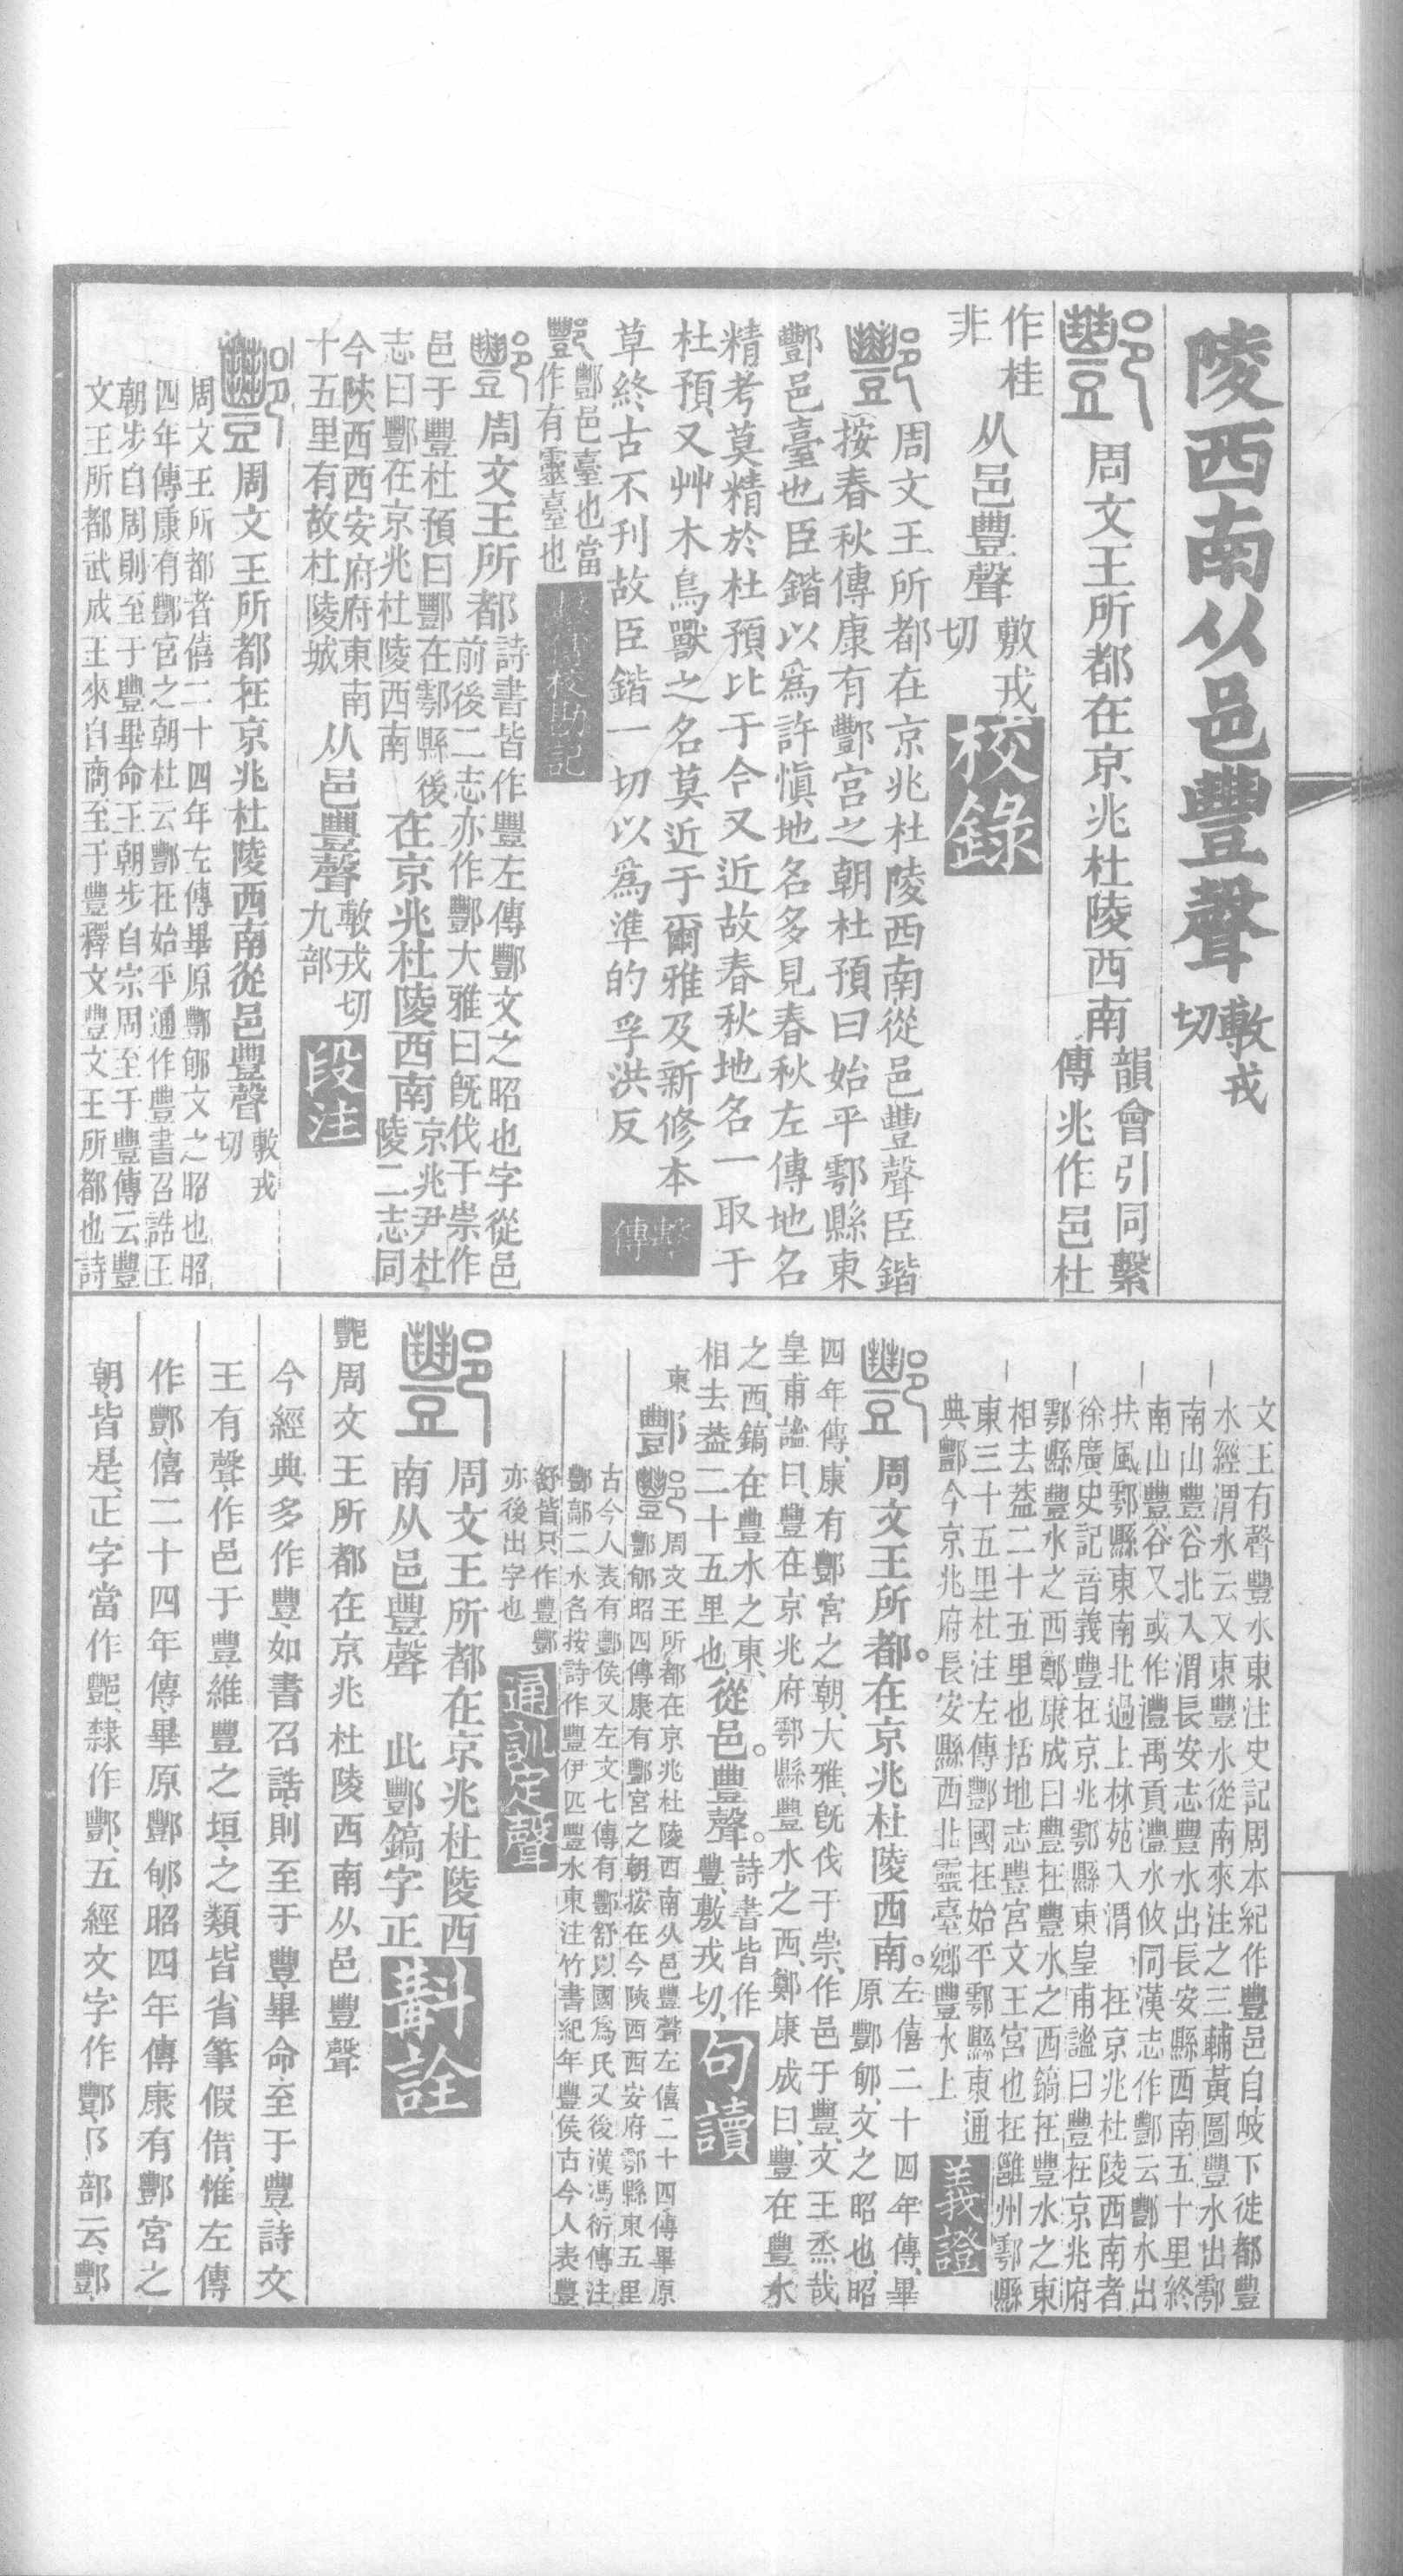 陵西南从邑豐聲敷戎切
周文王所都在京兆杜陵西南韻會引同繫
傳兆作邑杜
作桂
非
从邑豐聲敷戎
切
校錄
周文王所都在京兆杜陵西南從邑豐聲臣鍇
按春秋傳康有酆宮之朝杜預曰始平鄠縣東
酆邑臺也臣鍇以爲許愼地名多見春秋左傳地名
精考莫精於杜預比于今又近故春秋地名一取于
杜預又艸木鳥獸之名莫近于爾雅及新修本
草終古不刊故臣鍇一切以爲準的孚洪反
繫傳
酆邑臺也當
作有靈臺也
校勘記
周文王所都
詩書皆作豐左傳酆文之昭也字從邑
前後二志亦作酆大雅曰旣伐于崇作
邑于豐杜預曰酆在鄠縣後
志曰酆在京兆杜陵西南
在京兆杜陵西南
京兆尹杜
陵二志同
今陝西西安府府東南
十五里有故杜陵城
从邑豐聲
敷戎切
九部
段注
周文王所都在京兆杜陵西南從邑豐聲敷戎
切
周文王所都者僖二十四年左傳畢原酆郇文之昭也昭
四年傳康有酆宮之朝杜云酆在始平通作豐書召誥王
朝步自周則至于豐畢命王朝步自宗周至于豐傳云豐
文王所都武成王來自商至于豐釋文豐文王所都也詩
文王有聲豐水東注史記周本紀作豐邑自岐下徙都豐
水經渭水云又東豐水從南來注之三輔黃圖豐水出鄠
南山豐谷北入渭長安志豐水出長安縣西南五十里終
南山豐谷又或作灃禹貢灃水攸同漢志作酆云酆水出
扶風鄠縣東南北過上林苑入渭 在京兆杜陵西南者
徐廣史記音義豐在京兆鄠縣東皇甫謐曰豐在京兆府
鄠縣豐水之西鄭康成曰豐在豐水之西鎬在豐水之東
相去葢二十五里也括地志豐宮文王宮也在雝州鄠縣
東三十五里杜注左傳酆國在始平鄠縣東通
典酆今京兆府長安縣西北靈臺鄉豐水上
義證
周文王所都。在京兆杜陵西南。
左僖二十四年傳、畢
原酆郇、文之昭也、昭
四年傳、康有酆宮之朝、大雅、旣伐于崇、作邑于豐、文王烝哉
皇甫謐曰、豐在京兆府鄠縣豐水之西、鄭康成曰、豐在豐水
之西、鎬在豐水之東、
相去葢二十五里也、
從邑。豐聲。
詩書皆作
豐、敷戎切、
句讀
東 酆
周文王所都在京兆杜陵西南从邑豐聲左僖二十四傳畢原
酆郇昭四傳康有酆宮之朝按在今陝西西安府鄠縣東五里
古今人表有酆侯又左文七傳有酆舒以國爲氏又後漢馮衍傳注
酆鄗二水名按詩作豐伊匹豐水東注竹書紀年豐侯古今人表豐
舒皆只作豐酆
亦後出字也
通訓定聲
周文王所都在京兆杜陵西
南从邑豐聲 此酆鎬字正
斠詮
周文王所都在京兆杜陵西南从邑豐聲
今經典多作豐、如書召誥、則至于豐、畢命、至于豐、詩、文
王有聲、作邑于豐、維豐之垣、之類、皆省筆假借、惟左傳
作酆、僖二十四年傳、畢原酆郇、昭四年傳、康有酆宮之
朝、皆是、正字當作 、隸作酆、五經文字作酆、阝部云、酆、